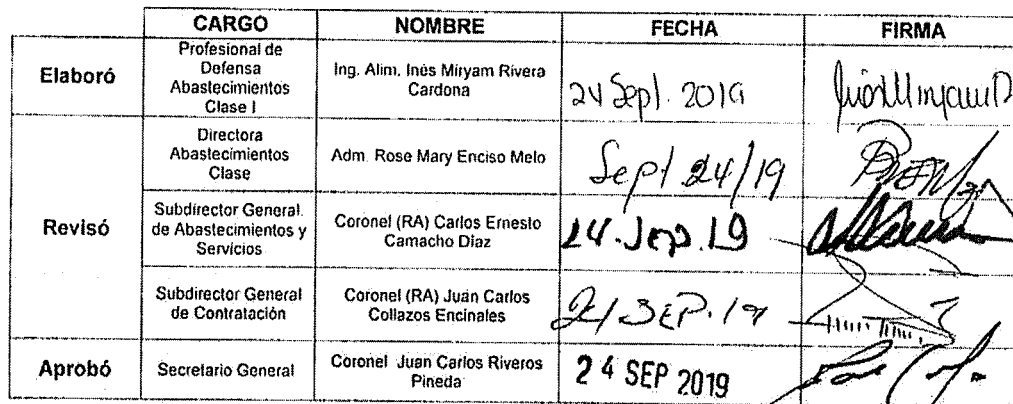 CARGO NOMBRE FECHA FIRMA
Elaboró
Profesional de
Defensa
Abastecimientos
Clase I
Ing. Alim. Inés Miryam Rivera
Cardona
24 Sept. 2019
Revisó
Directora
Abastecimientos
Clase
Adm. Rose Mary Enciso Melo
Sept 24/19
Subdirector General
de Abastecimientos y
Servicios
Coronel (RA) Carlos Ernesto
Camacho Díaz
24. Sep. 19
Subdirector General
de Contratación
Coronel (RA) Juan Carlos
Collazos Encinales
SEP. 19
Aprobó
Secretario General
Coronel Juan Carlos Riveros
Pineda
24 SEP 2019